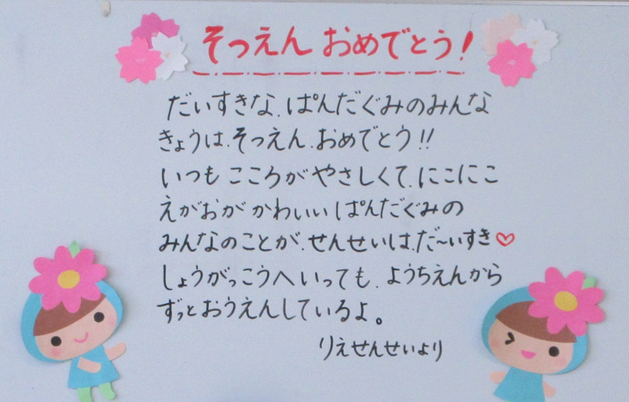 そつえん おめでとう!
だいすきな、ぱんだぐみのみんな
きょうは、そつえん、おめでとう!!
いつも こころが やさしくて、にこにこ
えがおが かわいい ぱんだぐみの
みんなのことが、せんせいは、だ〜いすき♡
しょうがっこうへ いっても、ようちえんから
ずっとおうえんしているよ。
りえせんせいより